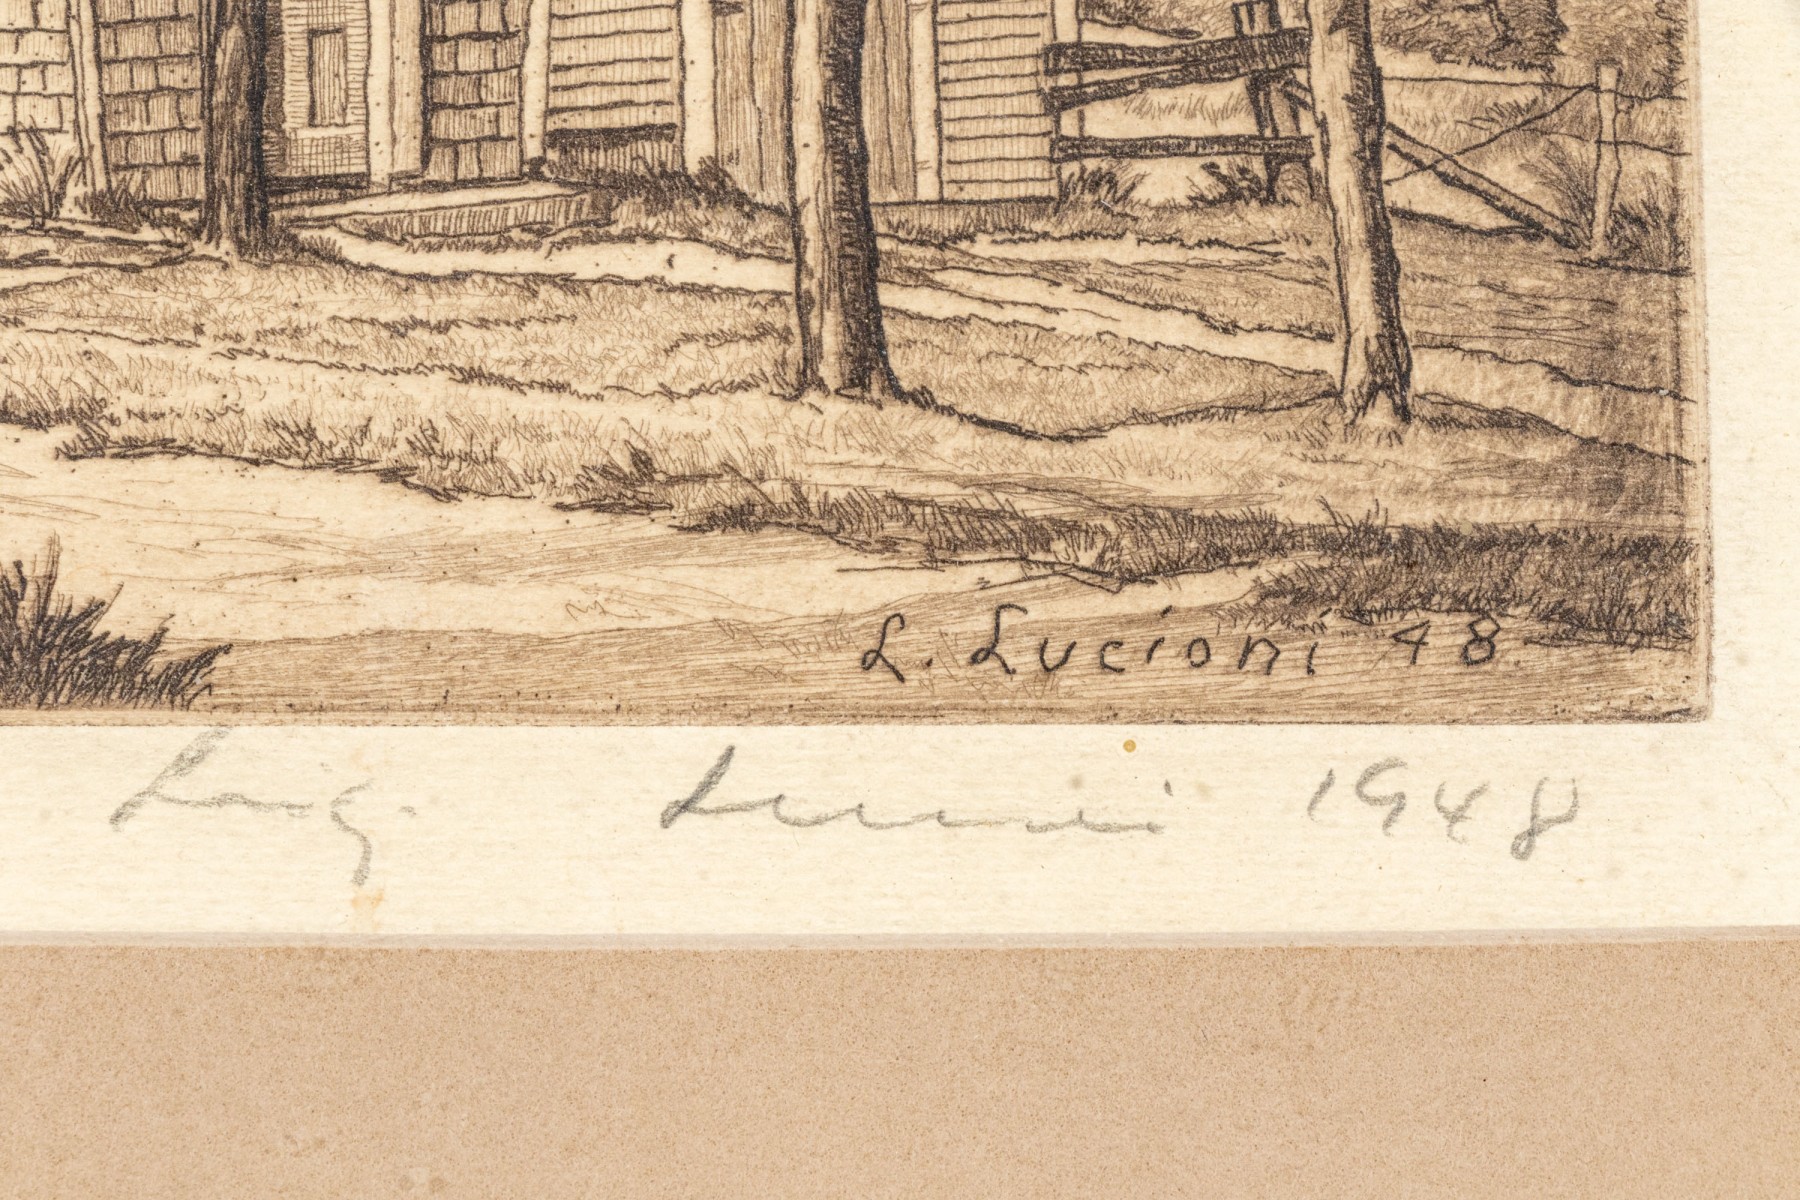 L. Lucioni 48
Luigi Lucioni 1948